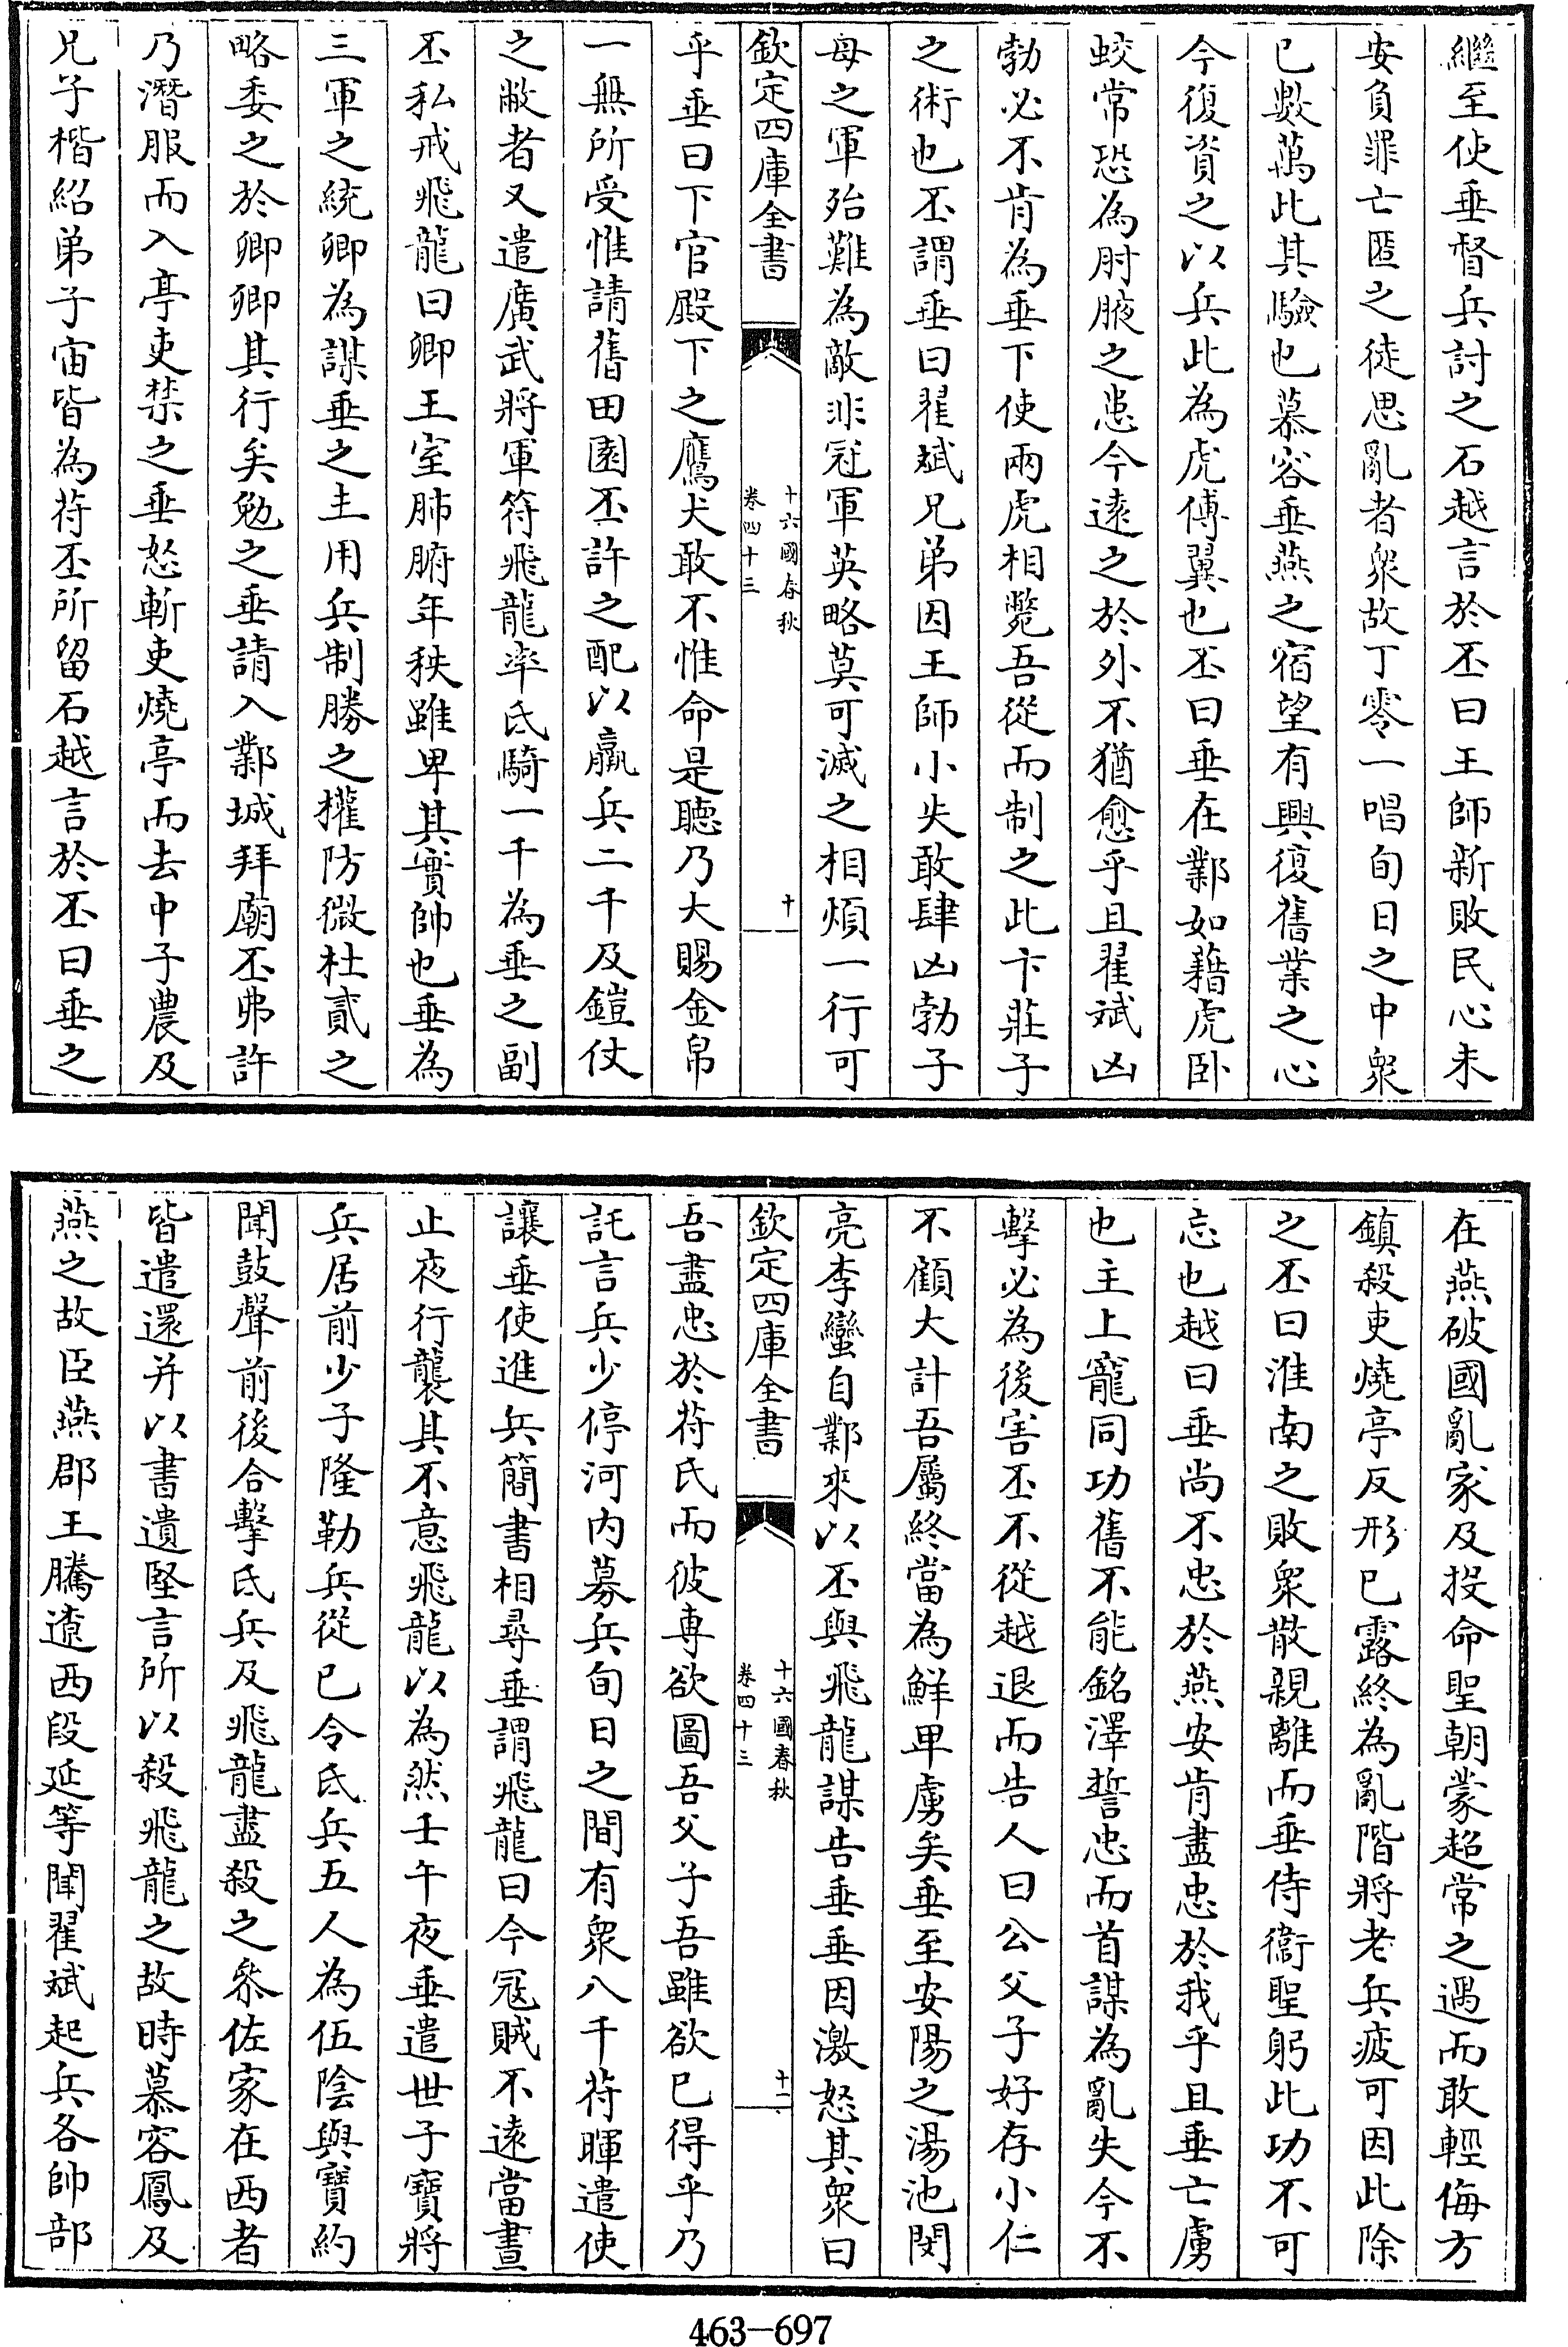 繼至使垂督兵討之石越言於丕曰王師新敗民心未
安負罪亡匿之徒思亂者衆故丁零一唱旬日之中衆
已數萬此其驗也慕容垂燕之宿望有興復舊業之心
今復資之以兵此為虎傅翼也丕曰垂在鄴如藉虎卧
蛟常恐為肘腋之患今遠之於外不猶愈乎且翟斌凶
勃必不肯為垂下使兩虎相斃吾從而制之此卞莊子
之術也丕謂垂曰翟斌兄弟因王師小失敢肆凶勃子
母之軍殆難為敵非冠軍英略莫可滅之相煩一行可
欽定四庫全書
十六國春秋
卷四十三
十
乎垂曰下官殿下之鷹犬敢不惟命是聽乃大賜金帛
一無所受惟請舊田園丕許之配以羸兵二千及鎧仗
之敝者又遣廣武將軍符飛龍率氐騎一千為垂之副
丕私戒飛龍曰卿王室肺腑年秩雖卑其實帥也垂為
三軍之統卿為謀垂之主用兵制勝之權防微杜貳之
略委之於卿卿其行矣勉之垂請入鄴城拜廟丕弗許
乃潛服而入亭吏禁之垂怒斬吏燒亭而去中子農及
兄子楷紹弟子宙皆為苻丕所留石越言於丕曰垂之
在燕破國亂家及投命聖朝蒙超常之遇而敢輕侮方
鎮殺吏燒亭反形已露終為亂階將老兵疲可因此除
之丕曰淮南之敗衆散親離而垂侍衞聖躬此功不可
忘也越曰垂尚不忠於燕安肯盡忠於我乎且垂亡虜
也主上寵同功舊不能銘澤誓忠而首謀為亂失今不
擊必為後害丕不從越退而告人曰公父子好存小仁
不顧大計吾屬終當為鮮卑虜矣垂至安陽之湯池閔
亮李蠻自鄴來以丕與飛龍謀告垂垂因激怒其衆曰
欽定四庫全書
十六國春秋
卷四十三
十一
吾盡忠於苻氏而彼專欲圖吾父子吾雖欲已得乎乃
託言兵少停河内募兵旬日之間有衆八千苻暉遣使
讓垂使進兵簡書相尋垂謂飛龍曰今冦賊不遠當晝
止夜行襲其不意飛龍以為然壬午夜垂遣世子寶將
兵居前少子隆勒兵從已令氐兵五人為伍陰與寶約
聞鼓聲前後合擊氐兵及飛龍盡殺之叅佐家在西者
皆遣還并以書遺堅言所以殺飛龍之故時慕容鳳及
燕之故臣燕郡王騰遼西段延等聞翟斌起兵各帥部
463-697